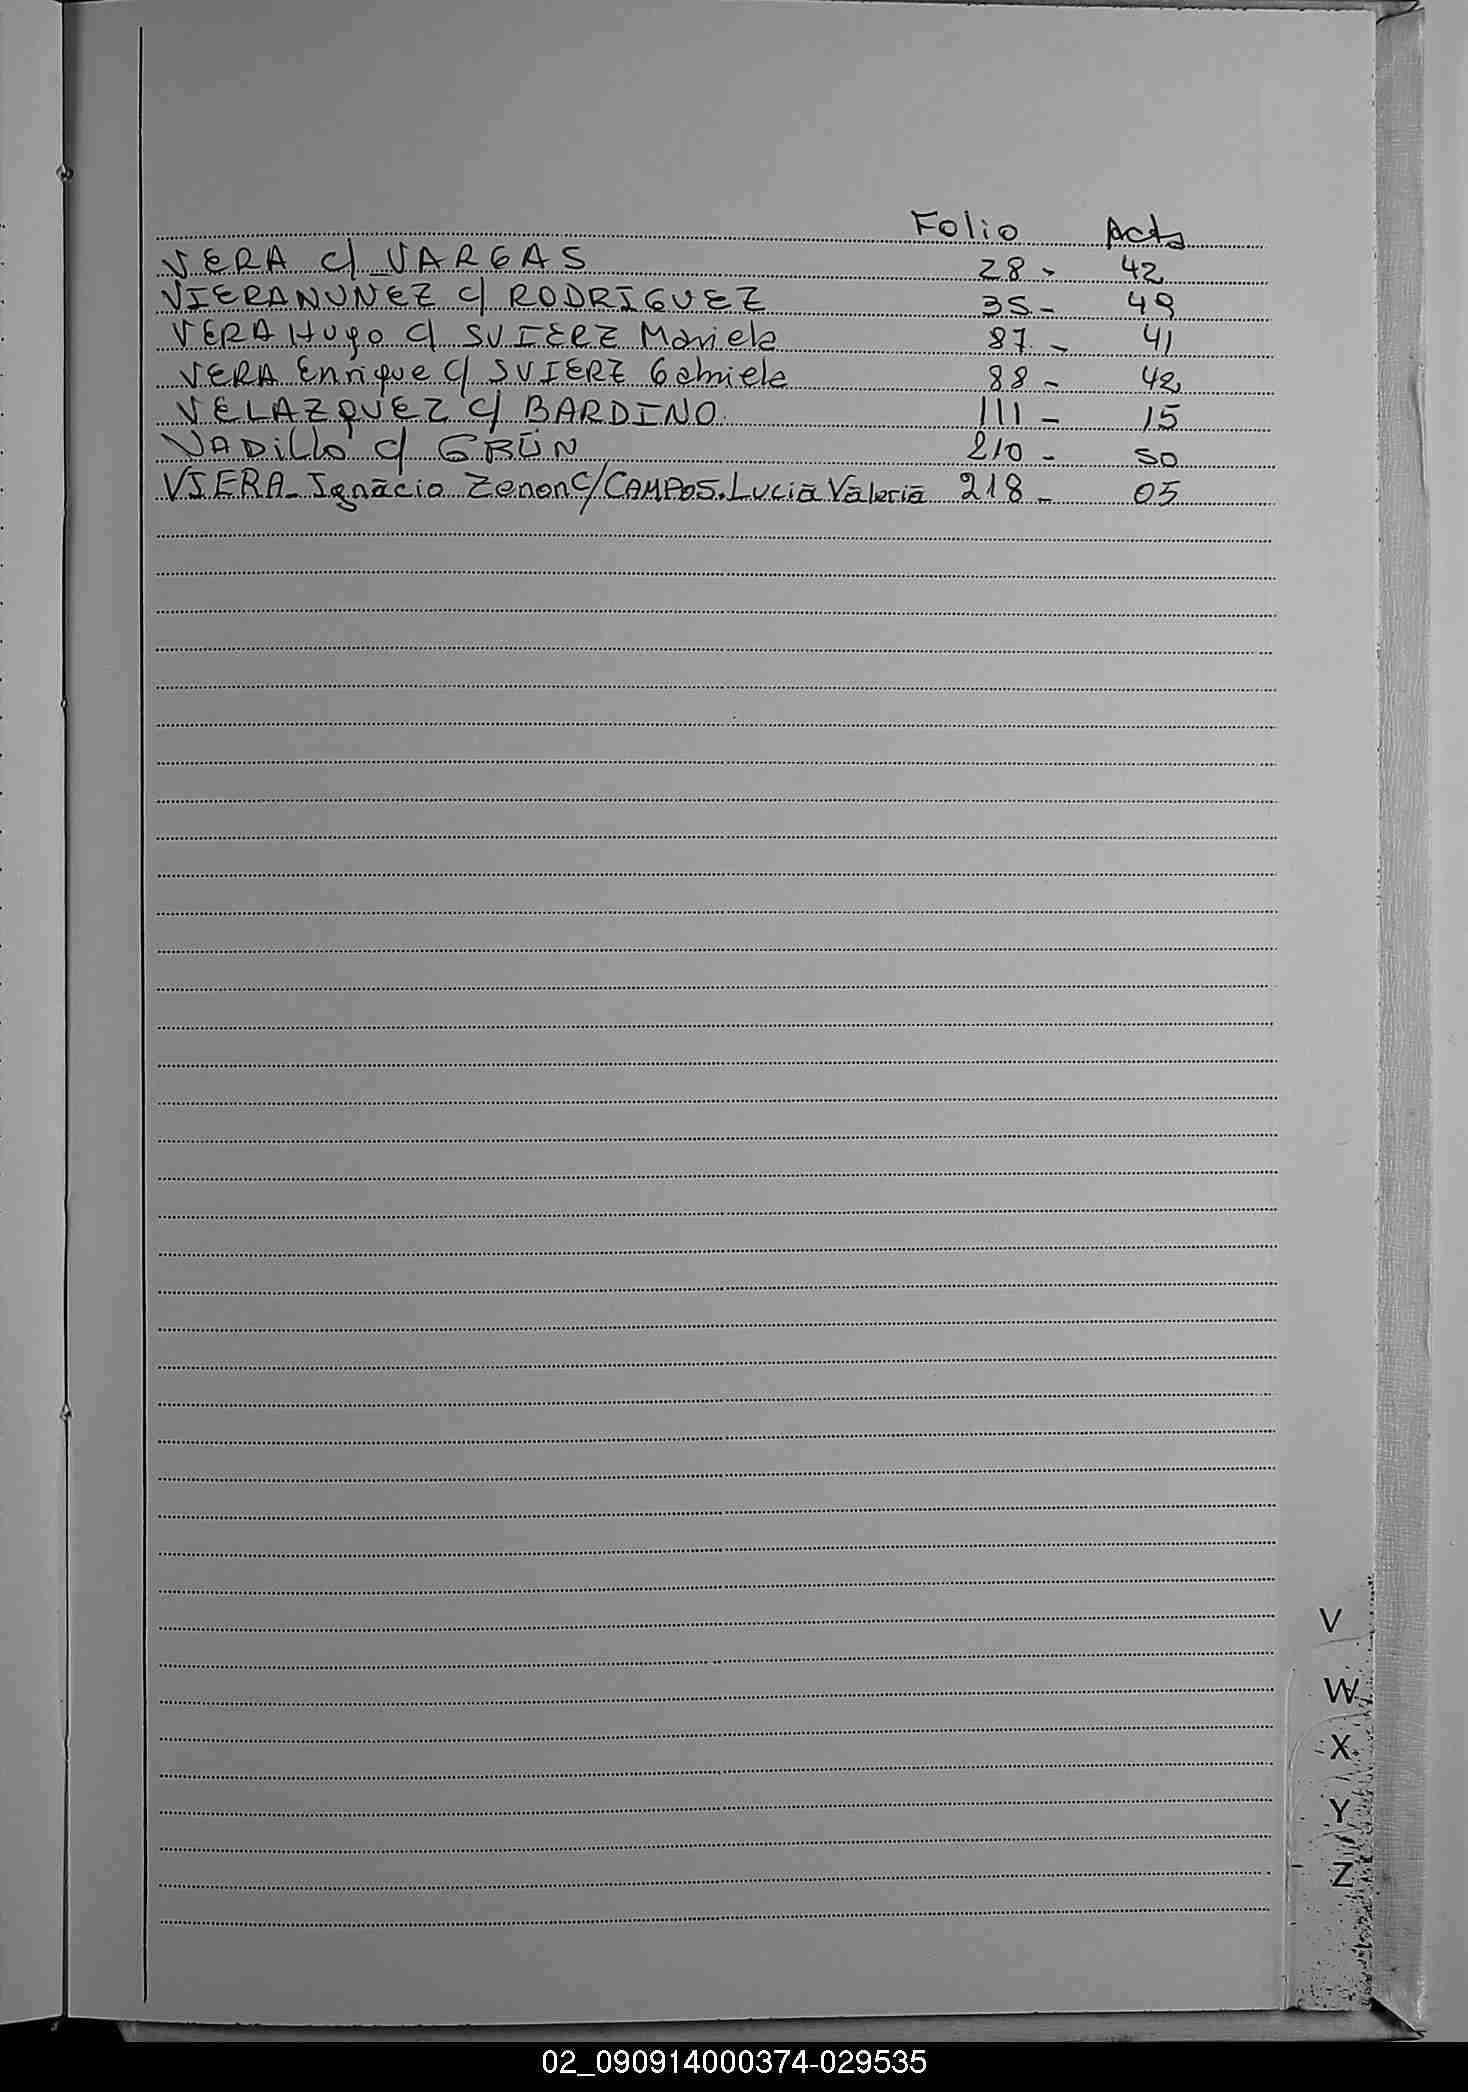 Folio Acta
VERA c/ VARGAS 28 - 42
VIERA NUNEZ c/ RODRIGUEZ 35 - 49
VERA Hugo c/ SVIERZ Mariela 87 - 41
VERA Enrique c/ SVIERZ Gabriela 88 - 42
VELAZQUEZ c/ BARDINO 111 - 15
VADillo c/ GRÜN 210 - 50
VIERA - Ignacio Zenon c/ CAMPOS. Lucia Valeria 218 - 05
V
W
X
Y
Z
02_090914000374-029535